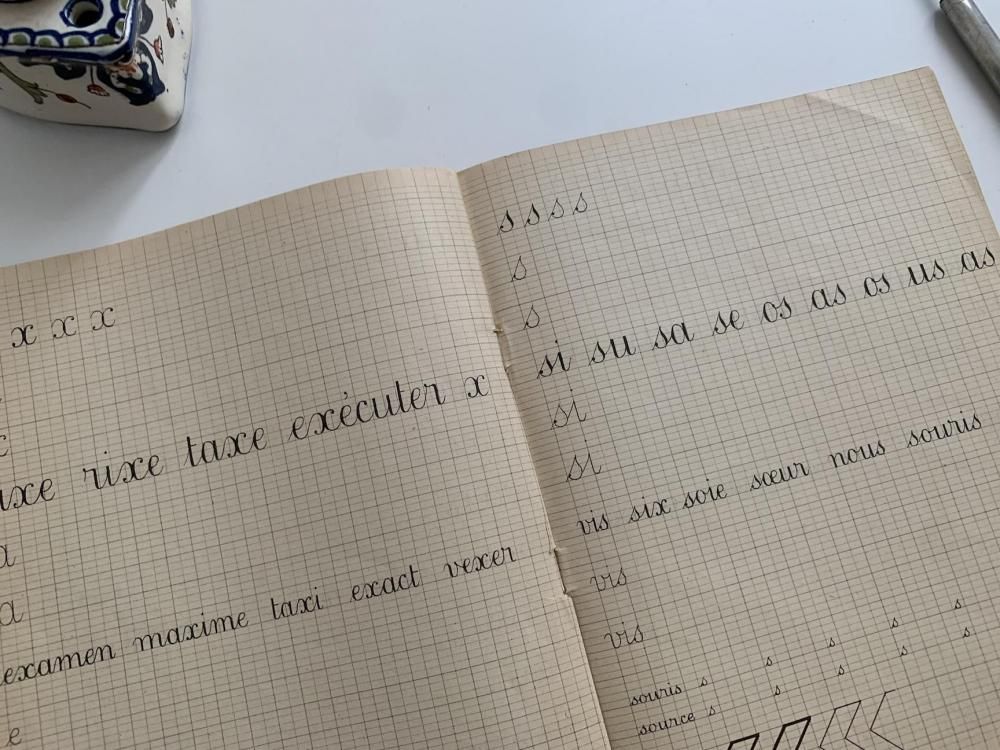 x x x
rixe taxe exécuter x
a
a
examen maxime taxi exact vexer
e
s s s s
s
s
si su sa se os as os us as
si
si
vis six soie sœur nous souris
vis
vis
souris s s s s s
source s s s s s